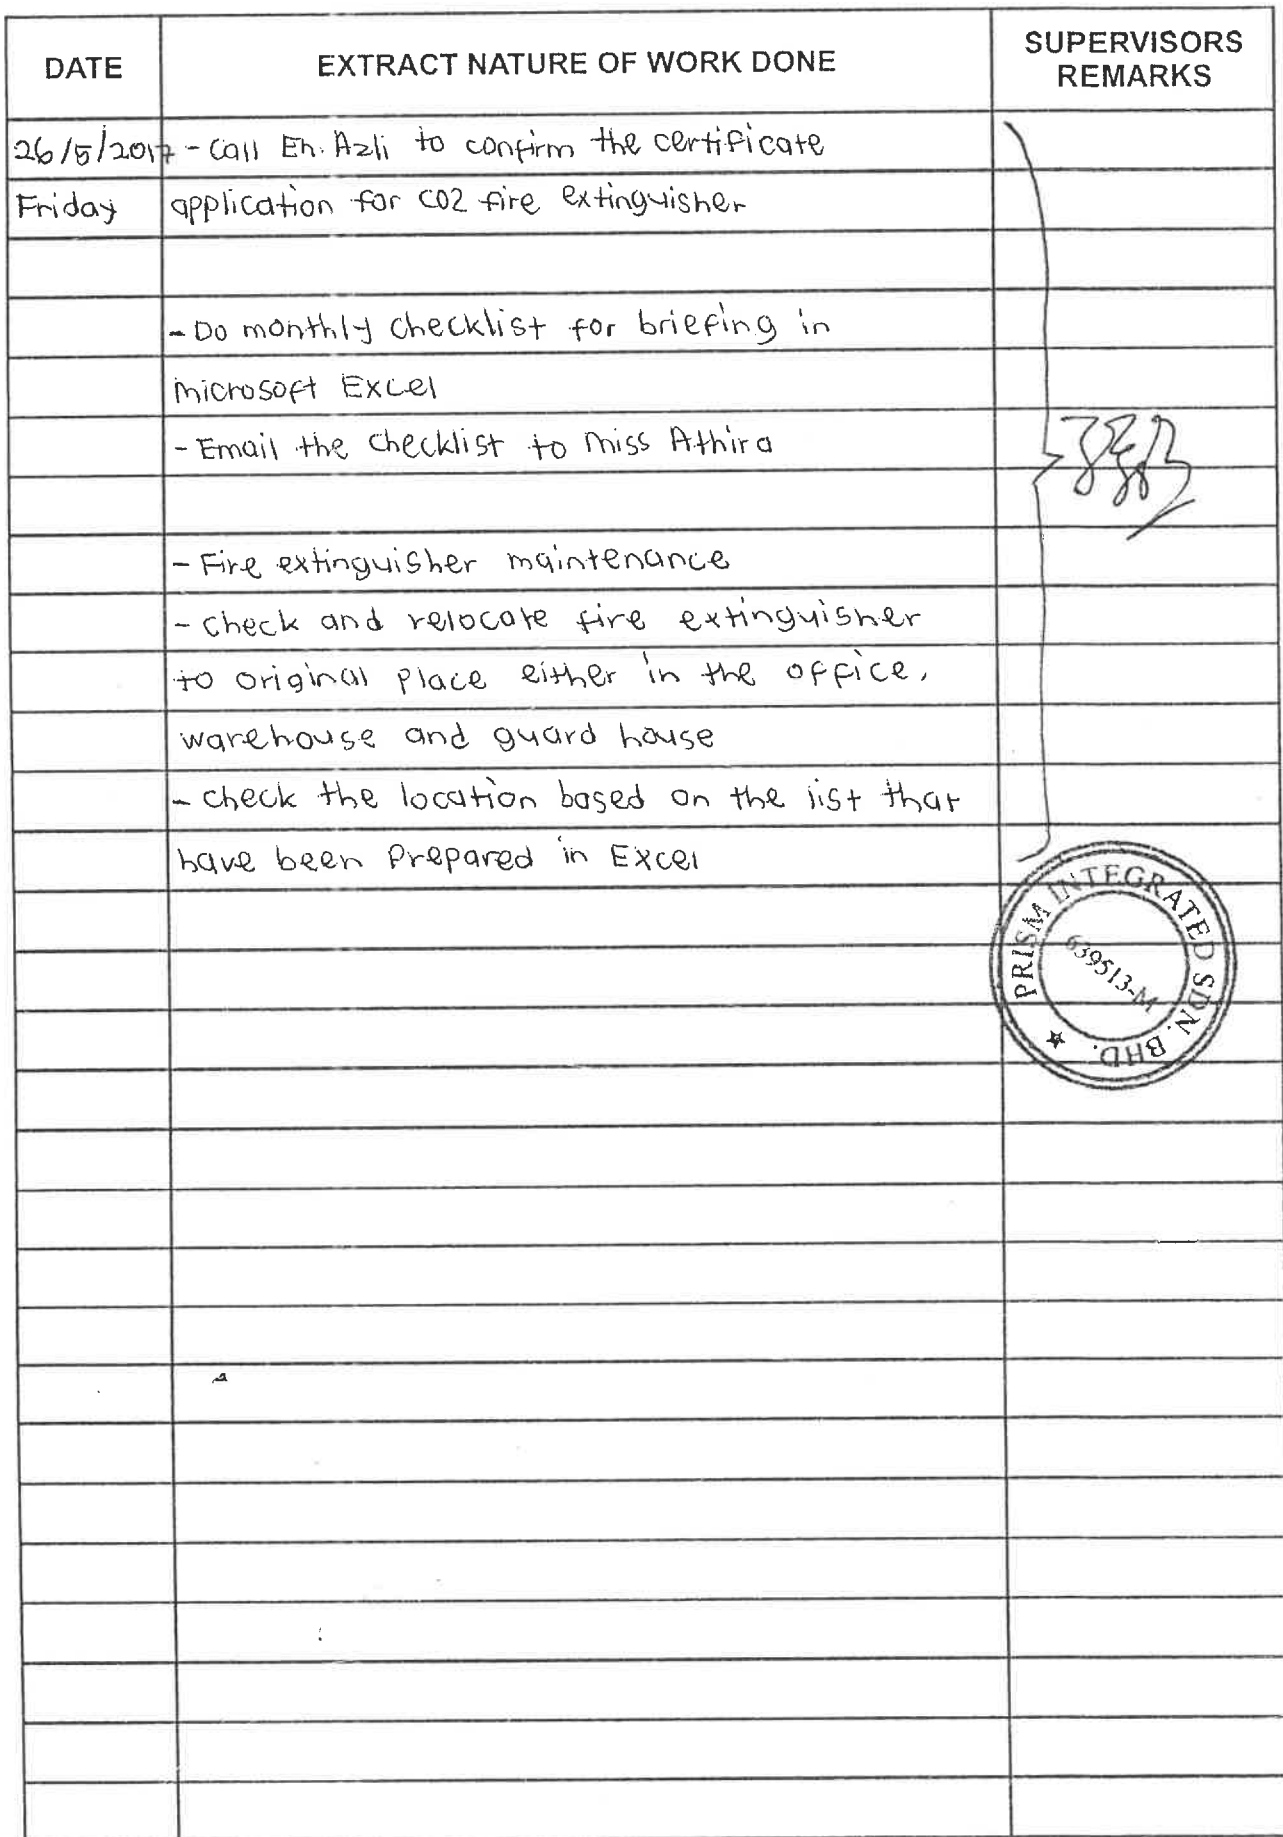 DATE
EXTRACT NATURE OF WORK DONE
SUPERVISORS
REMARKS
26/5/2017 - Call En. Azli to confirm the certificate
Friday application for CO2 fire extinguisher
- Do monthly checklist for briefing in
microsoft Excel
- Email the checklist to miss Athira
- Fire extinguisher maintenance
- check and relocate fire extinguisher
to original place either in the office,
warehouse and guard house
- check the location based on the list that
have been Prepared in Excel
PRISM INTEGRATED SDN. BHD.
639513-M